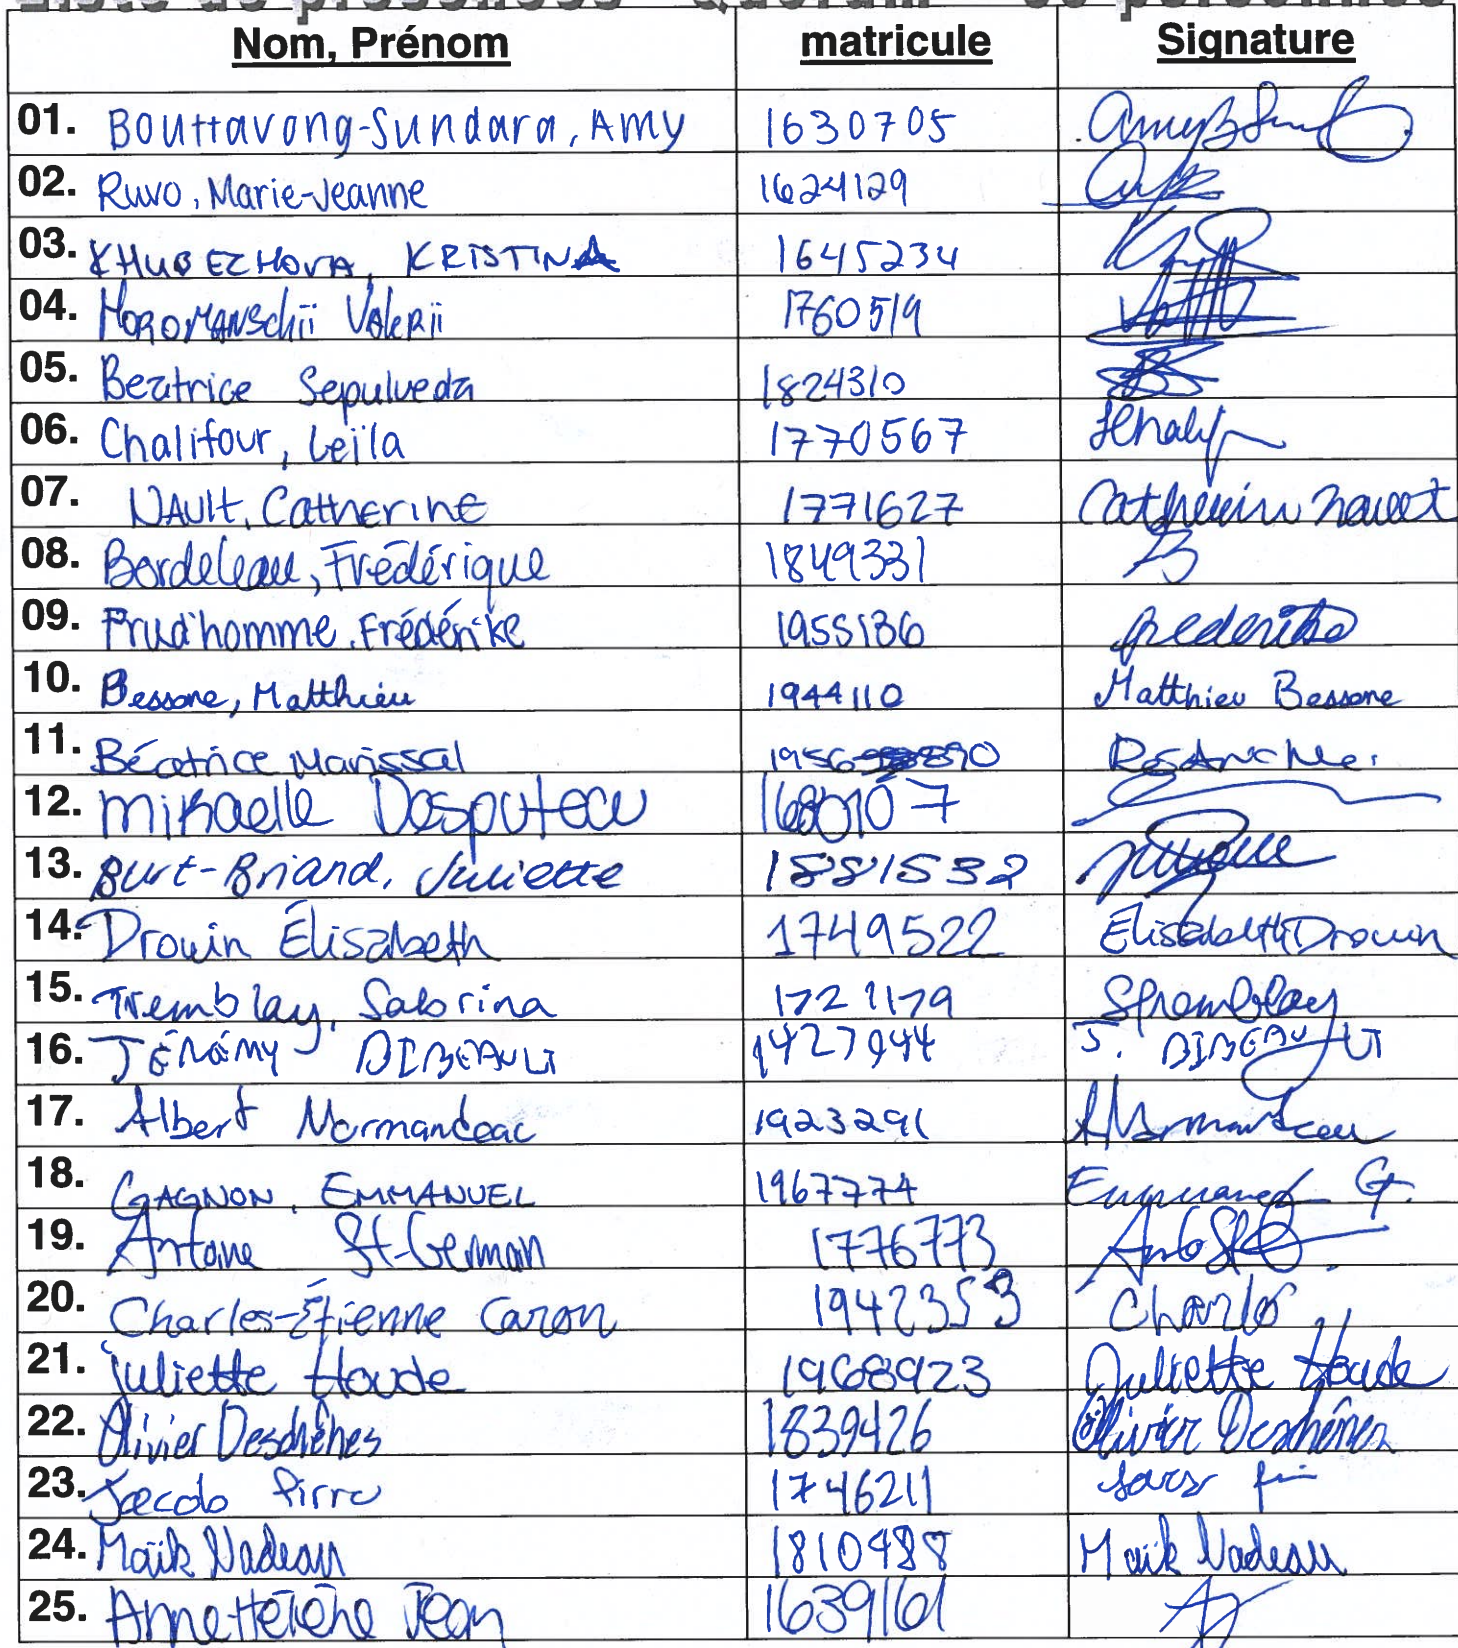 Liste de présences Quorum 30 personnes
Nom, Prénom matricule Signature
01. Bouttavong-Sundara, Amy 1630705
02. Ruvo, Marie-Jeanne 1624129
03. KHUBEZHOVA, KRISTINA 1645234
04. Moromanschii Valerii 1760519
05. Beatrice Sepulveda 1824310
06. Chalifour, Leïla 1770567
07. NAULT, Catherine 1771627 Catherine Nault
08. Bordeleau, Frédérique 1849331
09. Prud'homme, Frédérike 1955136 Frederike
10. Bessone, Matthieu 1944110 Matthieu Bessone
11. Béatrice Marissal
12. Mikaelle Desputeau
13. Burt-Briand, Juliette 1881532
14. Drouin Élisabeth 1749522 Élisabeth Drouin
15. Tremblay, Sabrina 1721179 STremblay
16. JÉRÉMY DIBEAULT 1427944 J. DIBEAULT
17. Albert Normandeau 1923291 ANormandeau
18. GAGNON, EMMANUEL 1967774 Emmanuel G.
19. Antoine St-Germain 1776773
20. Charles-Étienne Caron 1942353 Charles
21. Juliette Houde 1968923 Juliette Houde
22. Olivier Deschênes 1839426 Olivier Deschênes
23. Jacob Pirro 1746211
24. Maïk Nadeau 1810488 Maïk Nadeau
25. Anne-Hélène Jean 1639161